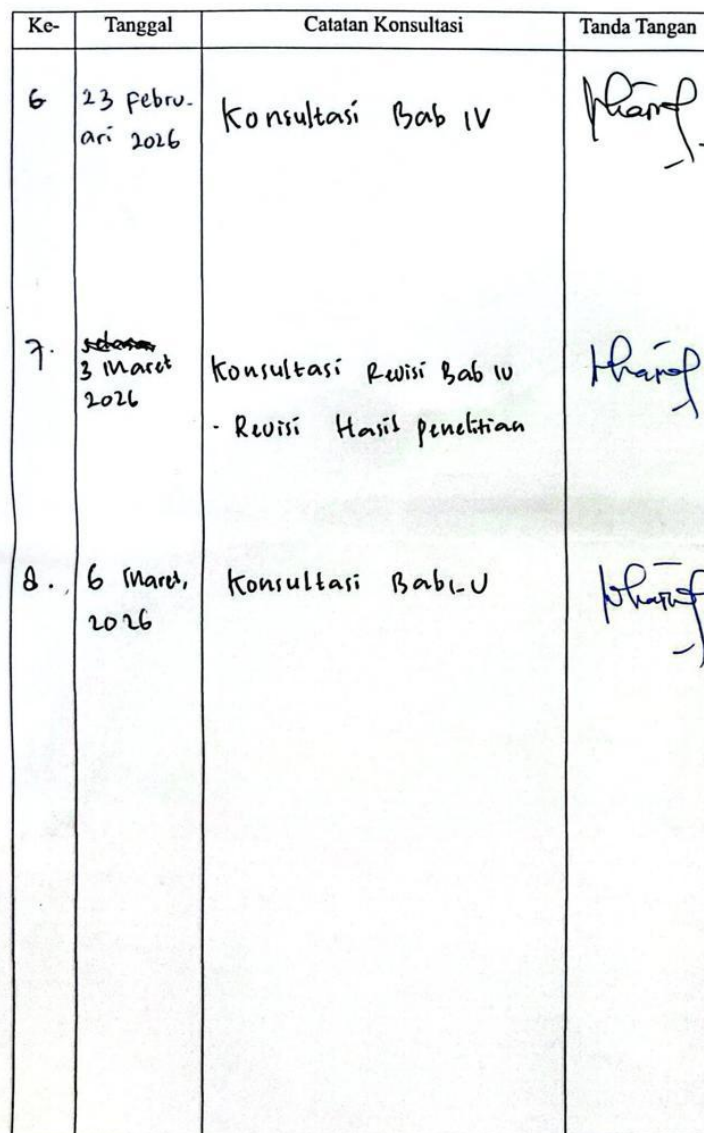 Ke- Tanggal Catatan Konsultasi Tanda Tangan
6 23 Febru-
ari 2026
Konsultasi Bab IV
7. 3 Maret
2026
Konsultasi Revisi Bab IV
- Revisi Hasil penelitian
8. 6 Maret,
2026
Konsultasi Bab I-V